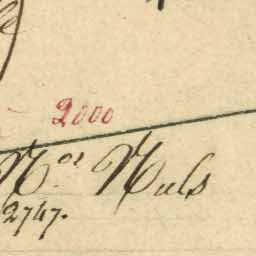 2000
Nos Nuls
2747.